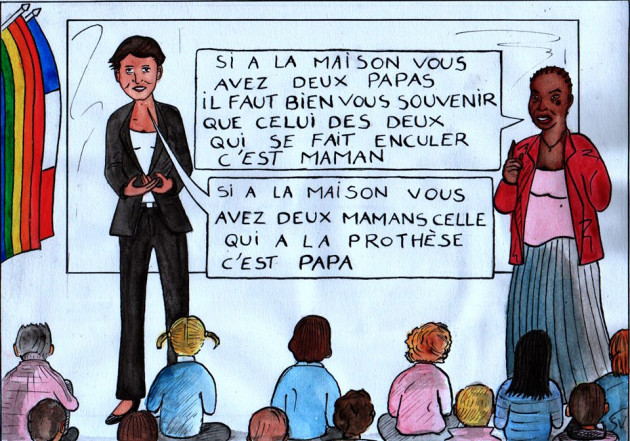 SI A LA MAISON VOUS
AVEZ DEUX PAPAS
IL FAUT BIEN VOUS SOUVENIR
QUE CELUI DES DEUX
QUI SE FAIT ENCULER
C'EST MAMAN
SI A LA MAISON VOUS
AVEZ DEUX MAMANS CELLE
QUI A LA PROTHÈSE
C'EST PAPA